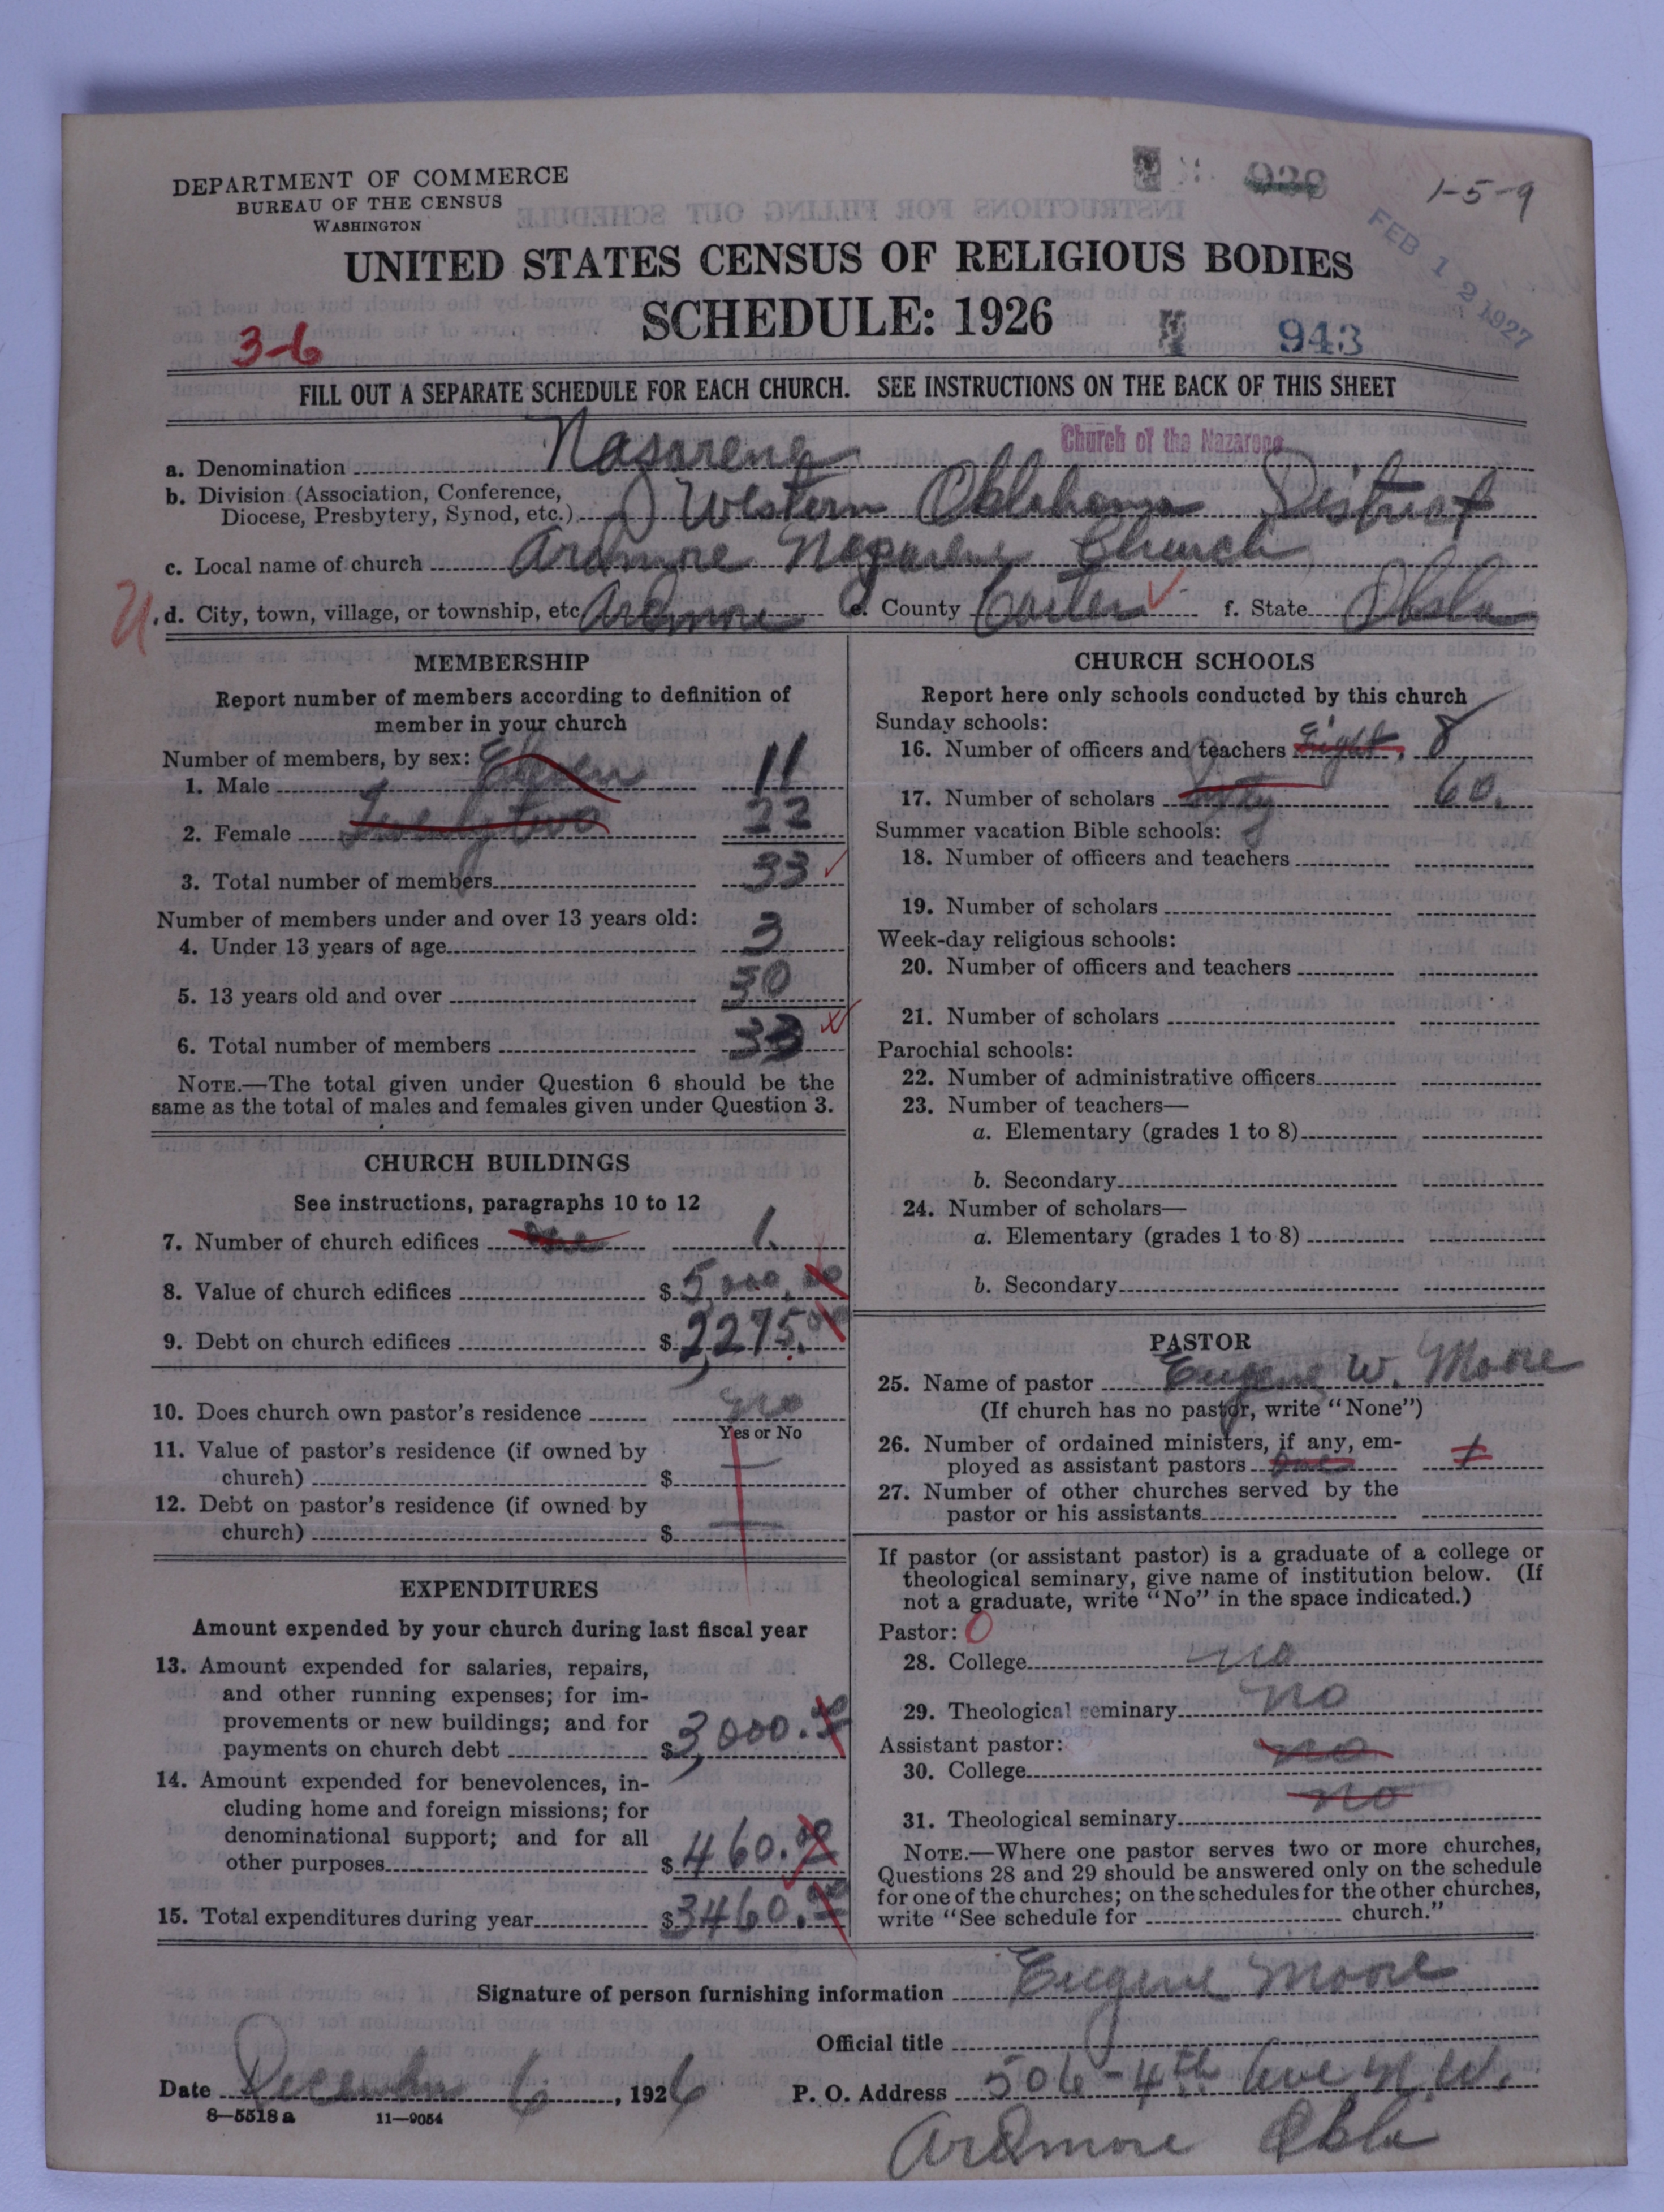 DEPARTMENT OF COMMERCE
BUREAU OF THE CENSUS
WASHINGTON
1-5-9
FEB 12 1927
UNITED STATES CENSUS OF RELIGIOUS BODIES
SCHEDULE: 1926
3-6
943
FILL OUT A SEPARATE SCHEDULE FOR EACH CHURCH. SEE INSTRUCTIONS ON THE BACK OF THIS SHEET
a. Denomination Nasarene Church of the Nazarene
b. Division (Association, Conference,
Diocese, Presbytery, Synod, etc.) Western Oklahoma District
c. Local name of church Ardmore Nazarene Church
d. City, town, village, or township, etc. Ardmore e. County Carter f. State Okla
MEMBERSHIP
Report number of members according to definition of
member in your church
Number of members, by sex:
1. Male Eleven 11
2. Female Twenty two 22
3. Total number of members 33
Number of members under and over 13 years old:
4. Under 13 years of age 3
5. 13 years old and over 30
6. Total number of members 33
NOTE.—The total given under Question 6 should be the
same as the total of males and females given under Question 3.
CHURCH BUILDINGS
See instructions, paragraphs 10 to 12
7. Number of church edifices one 1.
8. Value of church edifices $ 5,000.00
9. Debt on church edifices $ 2,275.00
10. Does church own pastor's residence no
Yes or No
11. Value of pastor's residence (if owned by
church) $
12. Debt on pastor's residence (if owned by
church) $
EXPENDITURES
Amount expended by your church during last fiscal year
13. Amount expended for salaries, repairs,
and other running expenses; for im-
provements or new buildings; and for
payments on church debt $ 3,000.00
14. Amount expended for benevolences, in-
cluding home and foreign missions; for
denominational support; and for all
other purposes $ 460.00
15. Total expenditures during year $ 3460.00
CHURCH SCHOOLS
Report here only schools conducted by this church
Sunday schools:
16. Number of officers and teachers Eight, 8
17. Number of scholars sixty 60.
Summer vacation Bible schools:
18. Number of officers and teachers
19. Number of scholars
Week-day religious schools:
20. Number of officers and teachers
21. Number of scholars
Parochial schools:
22. Number of administrative officers
23. Number of teachers—
a. Elementary (grades 1 to 8)
b. Secondary
24. Number of scholars—
a. Elementary (grades 1 to 8)
b. Secondary
PASTOR
25. Name of pastor Eugene W. Moore
(If church has no pastor, write "None")
26. Number of ordained ministers, if any, em-
ployed as assistant pastors one 1
27. Number of other churches served by the
pastor or his assistants
If pastor (or assistant pastor) is a graduate of a college or
theological seminary, give name of institution below. (If
not a graduate, write "No" in the space indicated.)
Pastor: 0
28. College no
29. Theological seminary no
Assistant pastor:
30. College no
31. Theological seminary no
NOTE.—Where one pastor serves two or more churches,
Questions 28 and 29 should be answered only on the schedule
for one of the churches; on the schedules for the other churches,
write "See schedule for church."
Signature of person furnishing information Eugene Moore
Official title
Date December 6, 1926 P. O. Address 506-4th Ave N.W.
8-5518 a 11-9054
Ardmore Okla